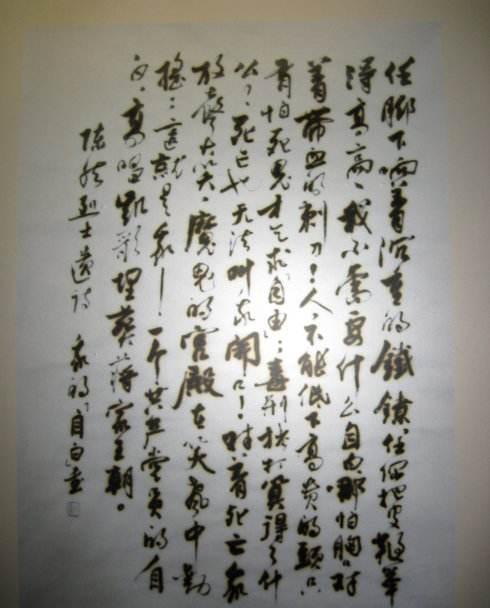 任脚下响着沉重的鐵鐐,任你把皮鞭举
得高高,我不需要什么自白,哪怕胸口对
着带血的刺刀!人,不能低下高贵的頭,只
有怕死鬼才乞求"自由";毒刑拷打算得了什
么?死亡也无法叫我開口!对着死亡我
放聲大笑,魔鬼的宫殿在笑聲中动
摇;這就是我—一个共产党员的自
白,高唱凯歌埋葬蒋家王朝。
陈然烈士遗诗 我的"自白書"